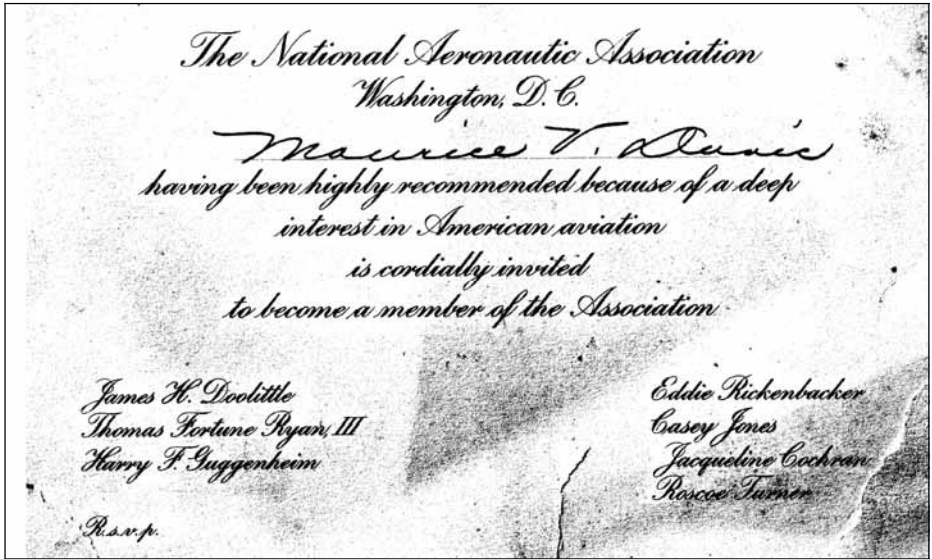 The National Aeronautic Association
Washington, D.C.
Maurice V. Davis
having been highly recommended because of a deep
interest in American aviation
is cordially invited
to become a member of the Association
James H. Doolittle
Thomas Fortune Ryan, III
Harry F. Guggenheim
Eddie Rickenbacker
Casey Jones
Jacqueline Cochran
Roscoe Turner
R.s.v.p.